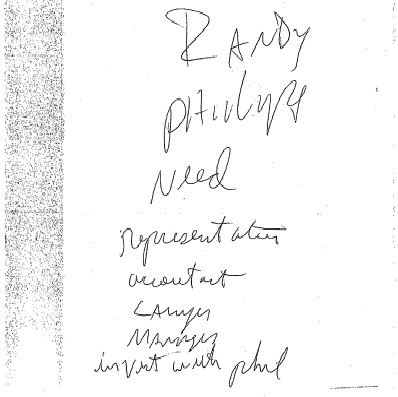 RANDY
PHILLIPS
Need
representation
accountant
Lawyer
Manager
invest with phil